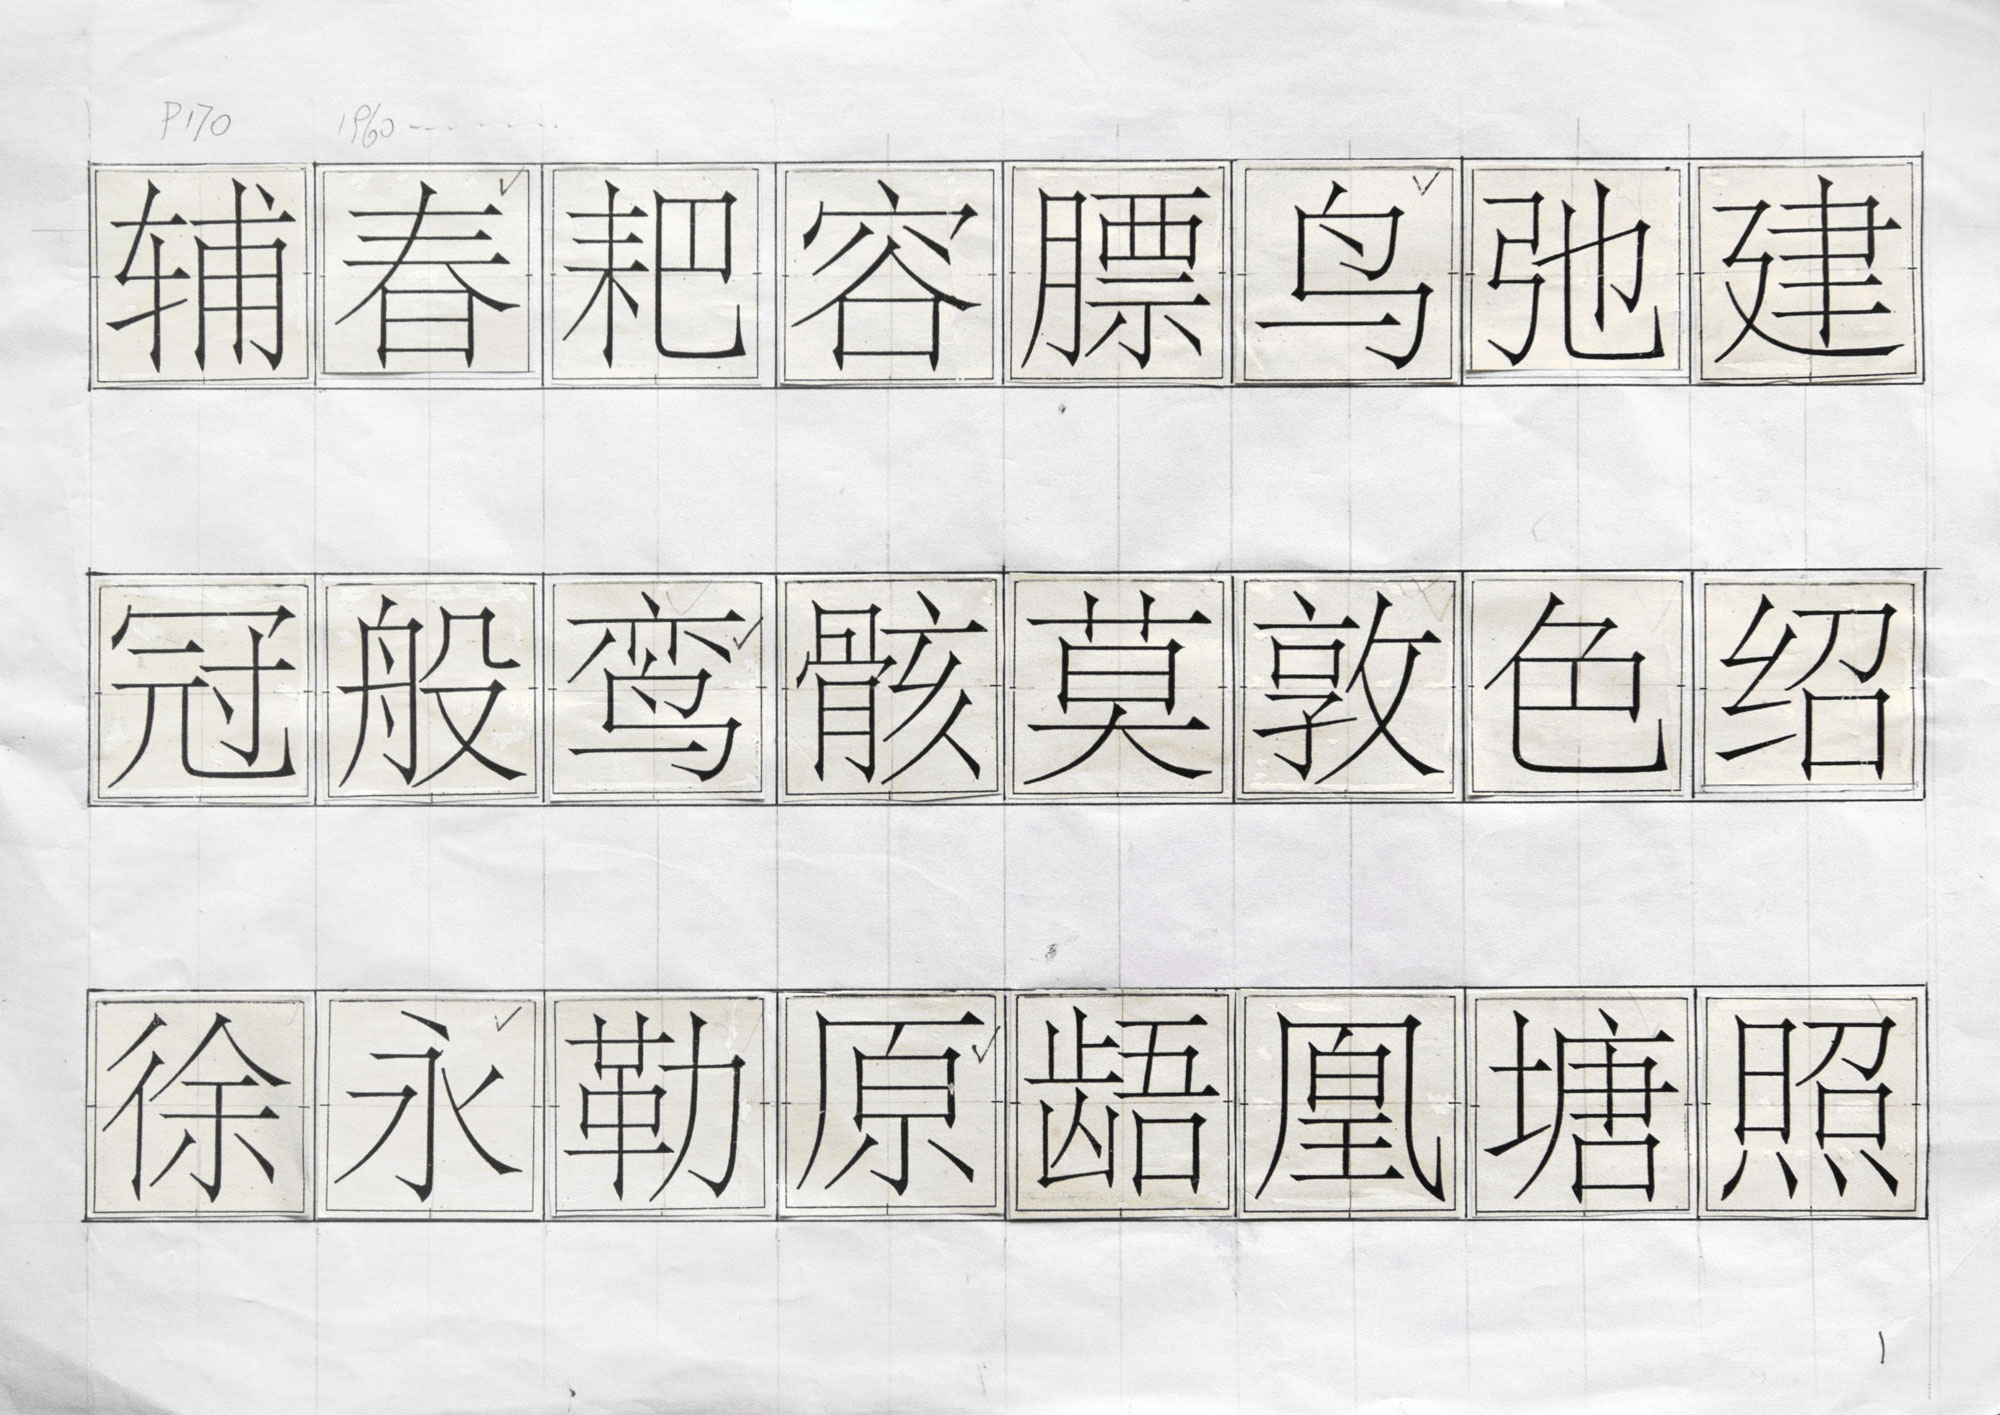 P170 1960
辅春耙容膘鸟弛建
冠般鸾骸莫敦色绍
徐永勒原龉凰塘照
1